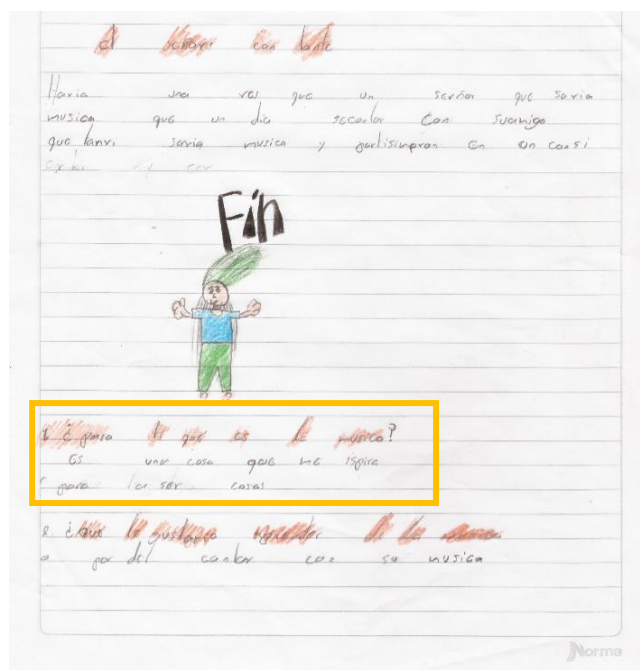 el señor can tante
Havia una ves que un serñor que savia
musica que un dia secontor con suamigo
que tanvi savia musica y partisimpron en un consi
Fin
¿para ti que es la musica?
Es una cosa que me ispira
para aser cosas
gustaria aprender de la
por del cantor con su musica
Norma